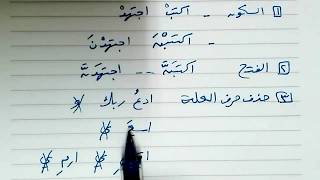 ① السكون - اكتبْ اجتهدْ
- اكتبْنَ اجتهدْنَ
② الفتح اكتبَنَّ -- اجتهدَنَّ
③ حذف حرف العلة ادعُ ربك
اسعَ
ارمِ